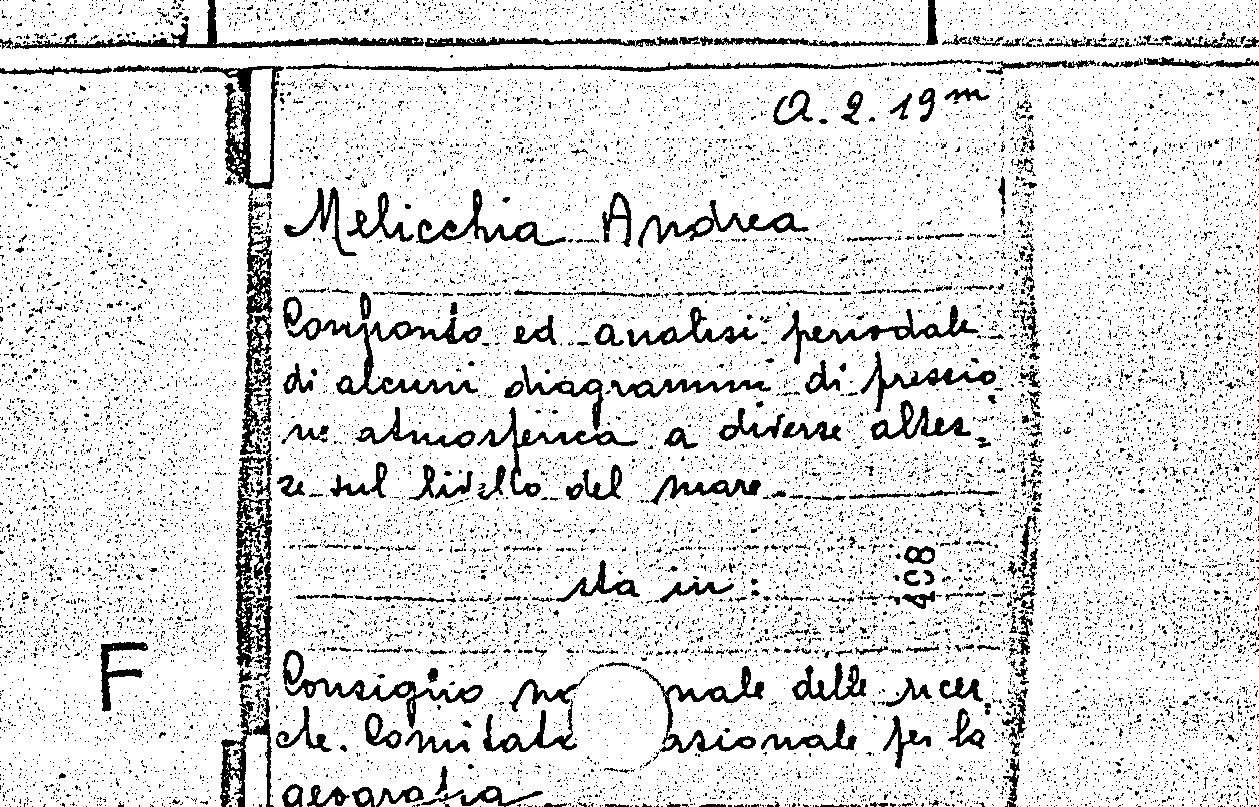 A.2.19m
Melicchia Andrea
Confronto ed analisi periodale
di alcuni diagrammi di pressio
ne atmosferica a diverse altez=
ze sul livello del mare.
sta in:
408
F
Consiglio na nale delle ricer
che. Comitato azionale per la
geografia